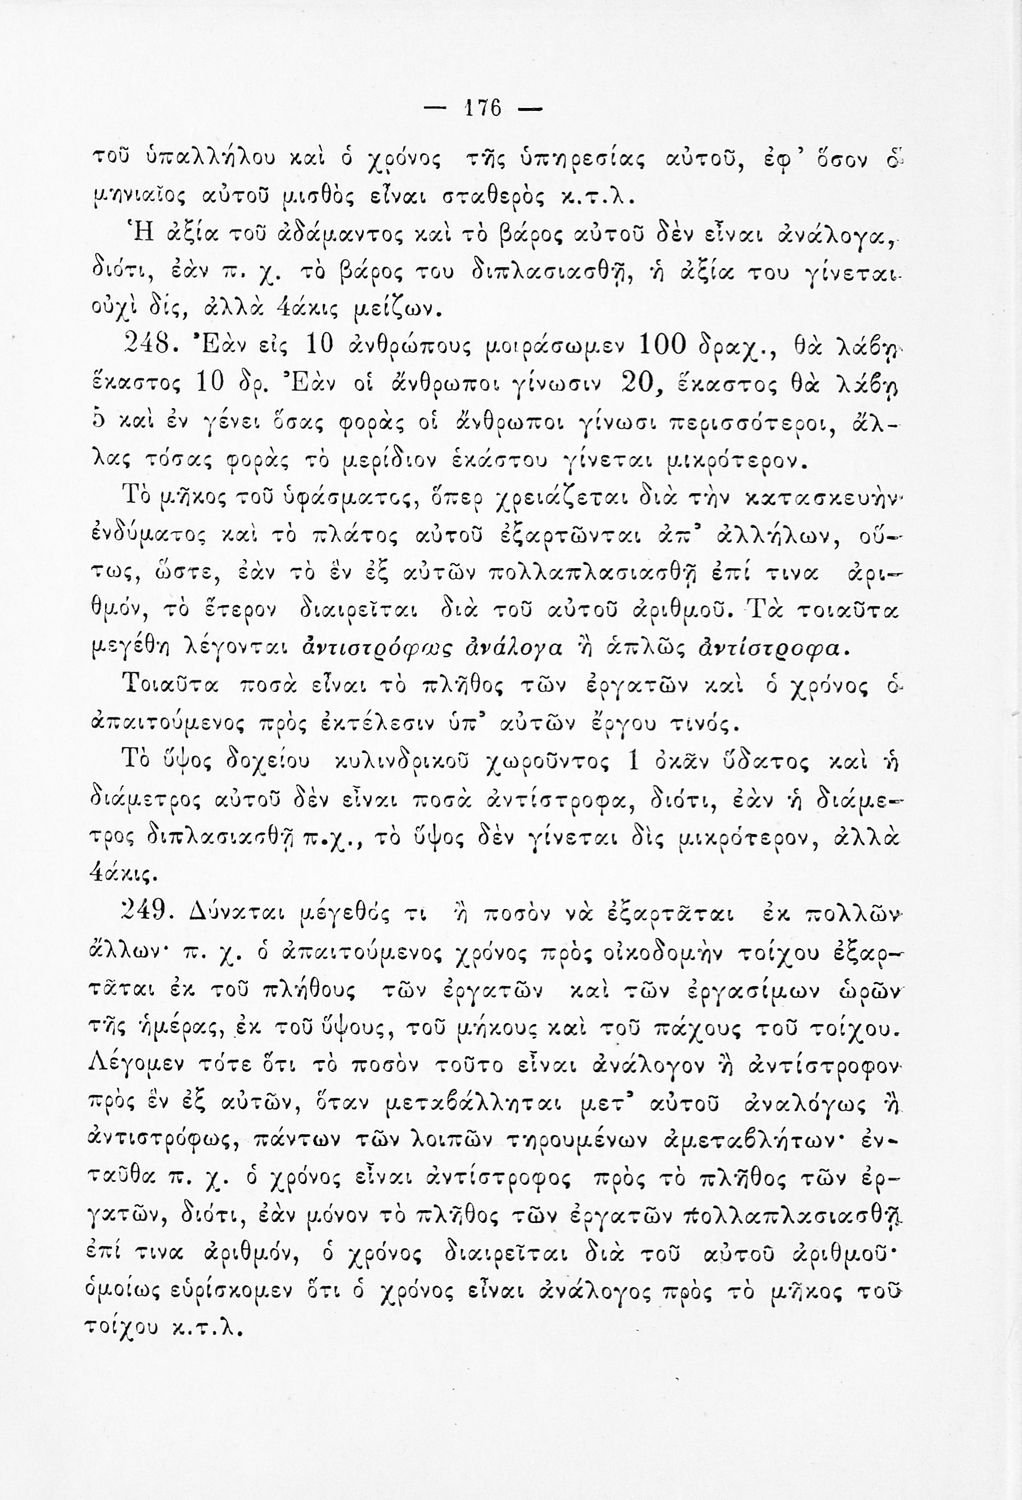 — 176 —
τοῦ ὑπαλλήλου καὶ ὁ χρόνος τῆς ὑπηρεσίας αὐτοῦ, ἐφ’ ὅσον ὁ
μηνιαῖος αὐτοῦ μισθὸς εἶναι σταθερὸς κ.τ.λ.
Ἡ ἀξία τοῦ ἀδάμαντος καὶ τὸ βάρος αὐτοῦ δὲν εἶναι ἀνάλογα,
διότι, ἐὰν π. χ. τὸ βάρος του διπλασιασθῇ, ἡ ἀξία του γίνεται
οὐχὶ δίς, ἀλλὰ 4άκις μείζων.
248. Ἐὰν εἰς 10 ἀνθρώπους μοιράσωμεν 100 δραχ., θὰ λάβῃ
ἕκαστος 10 δρ. Ἐὰν οἱ ἄνθρωποι γίνωσιν 20, ἕκαστος θὰ λάβῃ
5 καὶ ἐν γένει ὅσας φορὰς οἱ ἄνθρωποι γίνωσι περισσότεροι, ἄλ-
λας τόσας φορὰς τὸ μερίδιον ἑκάστου γίνεται μικρότερον.
Τὸ μῆκος τοῦ ὑφάσματος, ὅπερ χρειάζεται διὰ τὴν κατασκευὴν
ἐνδύματος καὶ τὸ πλάτος αὐτοῦ ἐξαρτῶνται ἀπ’ ἀλλήλων, οὕ-
τως, ὥστε, ἐὰν τὸ ἓν ἐξ αὐτῶν πολλαπλασιασθῇ ἐπί τινα ἀρι-
θμόν, τὸ ἕτερον διαιρεῖται διὰ τοῦ αὐτοῦ ἀριθμοῦ. Τὰ τοιαῦτα
μεγέθη λέγονται ἀντιστρόφως ἀνάλογα ἢ ἁπλῶς ἀντίστροφα.
Τοιαῦτα ποσὰ εἶναι τὸ πλῆθος τῶν ἐργατῶν καὶ ὁ χρόνος ὁ
ἀπαιτούμενος πρὸς ἐκτέλεσιν ὑπ’ αὐτῶν ἔργου τινός.
Τὸ ὕψος δοχείου κυλινδρικοῦ χωροῦντος 1 ὀκᾶν ὕδατος καὶ ἡ
διάμετρος αὐτοῦ δὲν εἶναι ποσὰ ἀντίστροφα, διότι, ἐὰν ἡ διάμε-
τρος διπλασιασθῇ π.χ., τὸ ὕψος δὲν γίνεται δὶς μικρότερον, ἀλλὰ
4άκις.
249. Δύναται μέγεθός τι ἢ ποσὸν νὰ ἐξαρτᾶται ἐκ πολλῶν
ἄλλων· π. χ. ὁ ἀπαιτούμενος χρόνος πρὸς οἰκοδομὴν τοίχου ἐξαρ-
τᾶται ἐκ τοῦ πλήθους τῶν ἐργατῶν καὶ τῶν ἐργασίμων ὡρῶν
τῆς ἡμέρας, ἐκ τοῦ ὕψους, τοῦ μήκους καὶ τοῦ πάχους τοῦ τοίχου.
Λέγομεν τότε ὅτι τὸ ποσὸν τοῦτο εἶναι ἀνάλογον ἢ ἀντίστροφον
πρὸς ἓν ἐξ αὐτῶν, ὅταν μεταβάλληται μετ’ αὐτοῦ ἀναλόγως ἢ
ἀντιστρόφως, πάντων τῶν λοιπῶν τηρουμένων ἀμεταβλήτων· ἐν-
ταῦθα π. χ. ὁ χρόνος εἶναι ἀντίστροφος πρὸς τὸ πλῆθος τῶν ἐρ-
γατῶν, διότι, ἐὰν μόνον τὸ πλῆθος τῶν ἐργατῶν πολλαπλασιασθῇ
ἐπί τινα ἀριθμόν, ὁ χρόνος διαιρεῖται διὰ τοῦ αὐτοῦ ἀριθμοῦ·
ὁμοίως εὑρίσκομεν ὅτι ὁ χρόνος εἶναι ἀνάλογος πρὸς τὸ μῆκος τοῦ
τοίχου κ.τ.λ.